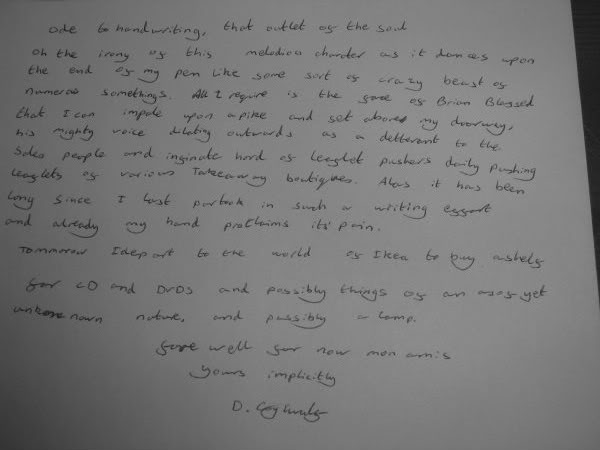 Ode to handwriting, that outlet of the soul
Oh the irony of this melodious charater as it dances upon
the end of my pen like some sort of crazy beast of
numerous somethings. All I require is the face of Brian Blessed
that I can impale upon a pike and set above my doorway,
his mighty voice dilating outwards as a detterant to the
Sales people and hord of leaflet pushers daily pushing
leaflets of various Takeaway boutiques. Alas it has been
long since I last partook in such a writing effort
and already my hand proclaims its' pain.
Tommorow I depart to the world of Ikea to buy a shelf
for CD and DVDs and possibly things of an as of yet
nature, and possibly a lamp.
fare well for now mon amis
Yours implicitly
D.